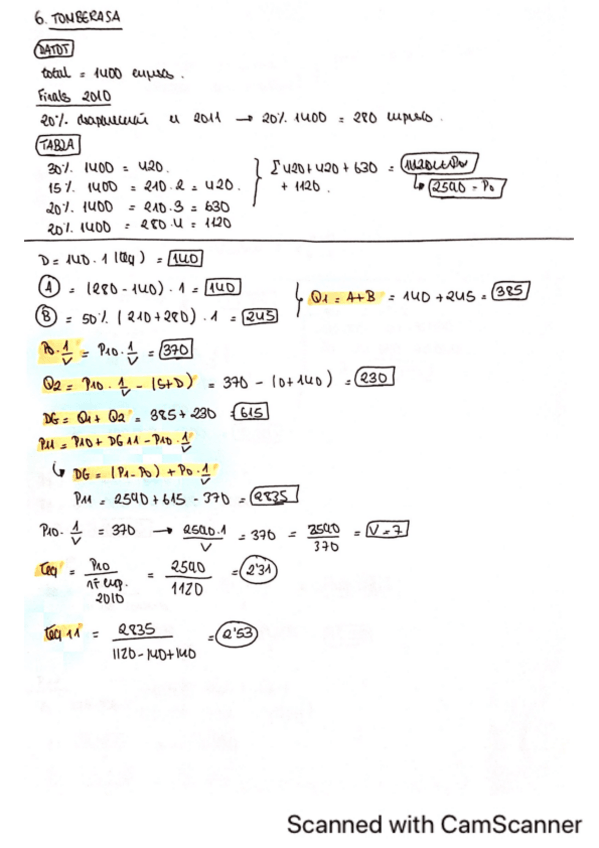 6. TONBERASA
DATOT
total = 1400 empresas.
Finals 2010
20%. desaparecerán en 2011 → 20%. 1400 = 280 empresas.
TABLA
30%. 1400 = 420.
15%. 1400 = 210.2 = 420.
20%. 1400 = 210.3 = 630
20%. 1400 = 280.4 = 1120
Σ 420+420+630 =
+ 1120.
2590 = P0
D = 140.1 (Teq) = 140
A = (280-140).1 = 140
B = 50%. (210+280).1 = 245
Q1 = A+B = 140 + 245 = 385
P0.1/V = P10.1/V = 370
Q2 = P10.1/V - (S+D) = 370 - (0+140) = 230
DG = Q1 + Q2 = 385+230 = 615
P11 = P10 + DG 11 - P10.1/V
↳ DG = (P1-P0) + P0.1/V
P11 = 2590 + 615 - 370 = 2835
P10.1/V = 370 → 2590.1/V = 370 = 2590/370 = V=7
Teq = P10/nº emp. 2010 = 2590/1120 = 2'31
Teq 11 = 2835/1120-140+140 = 2'53
Scanned with CamScanner